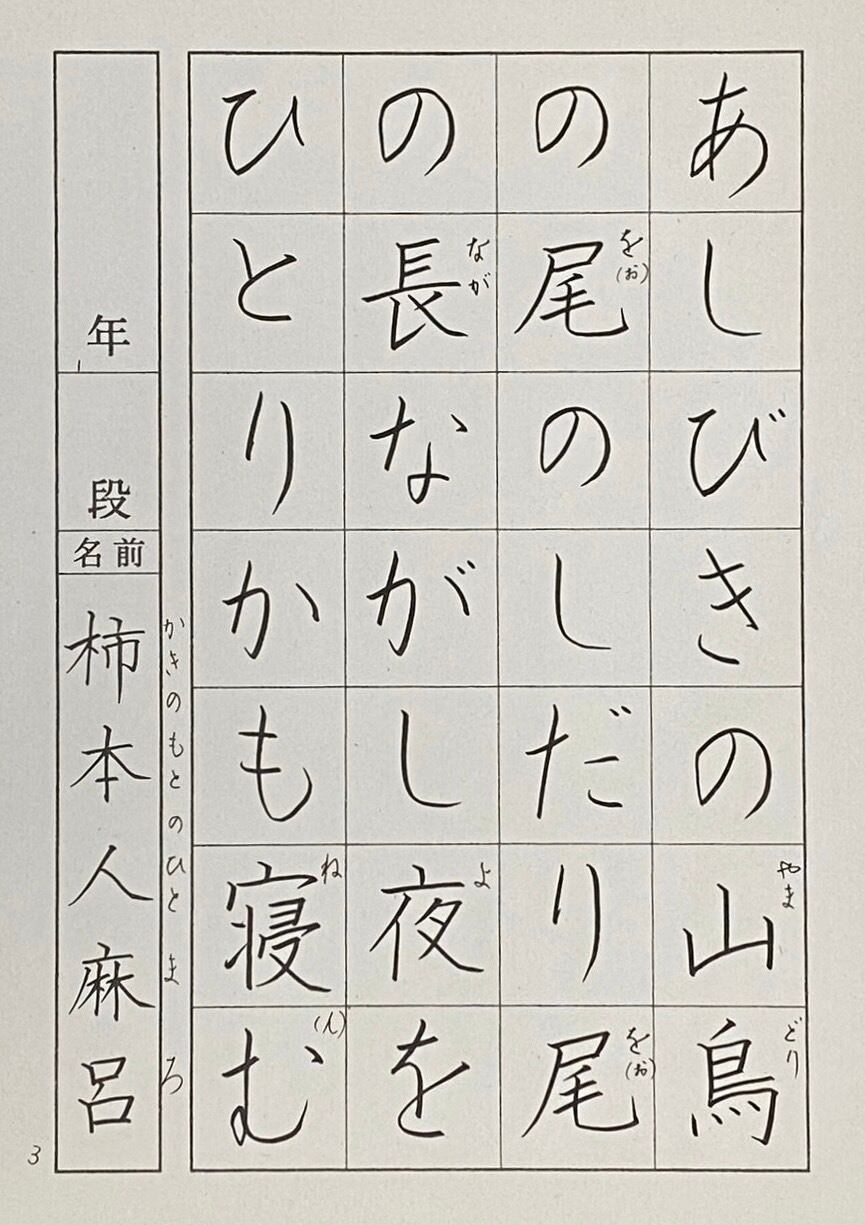 あしびきの山鳥
やまどり
の尾のしだり尾
を(お)
を(お)
の長ながし夜を
なが
よ
ひとりかも寝む
ね
(ん)
年
段
名前
柿本人麻呂
かきのもとのひとまろ
3